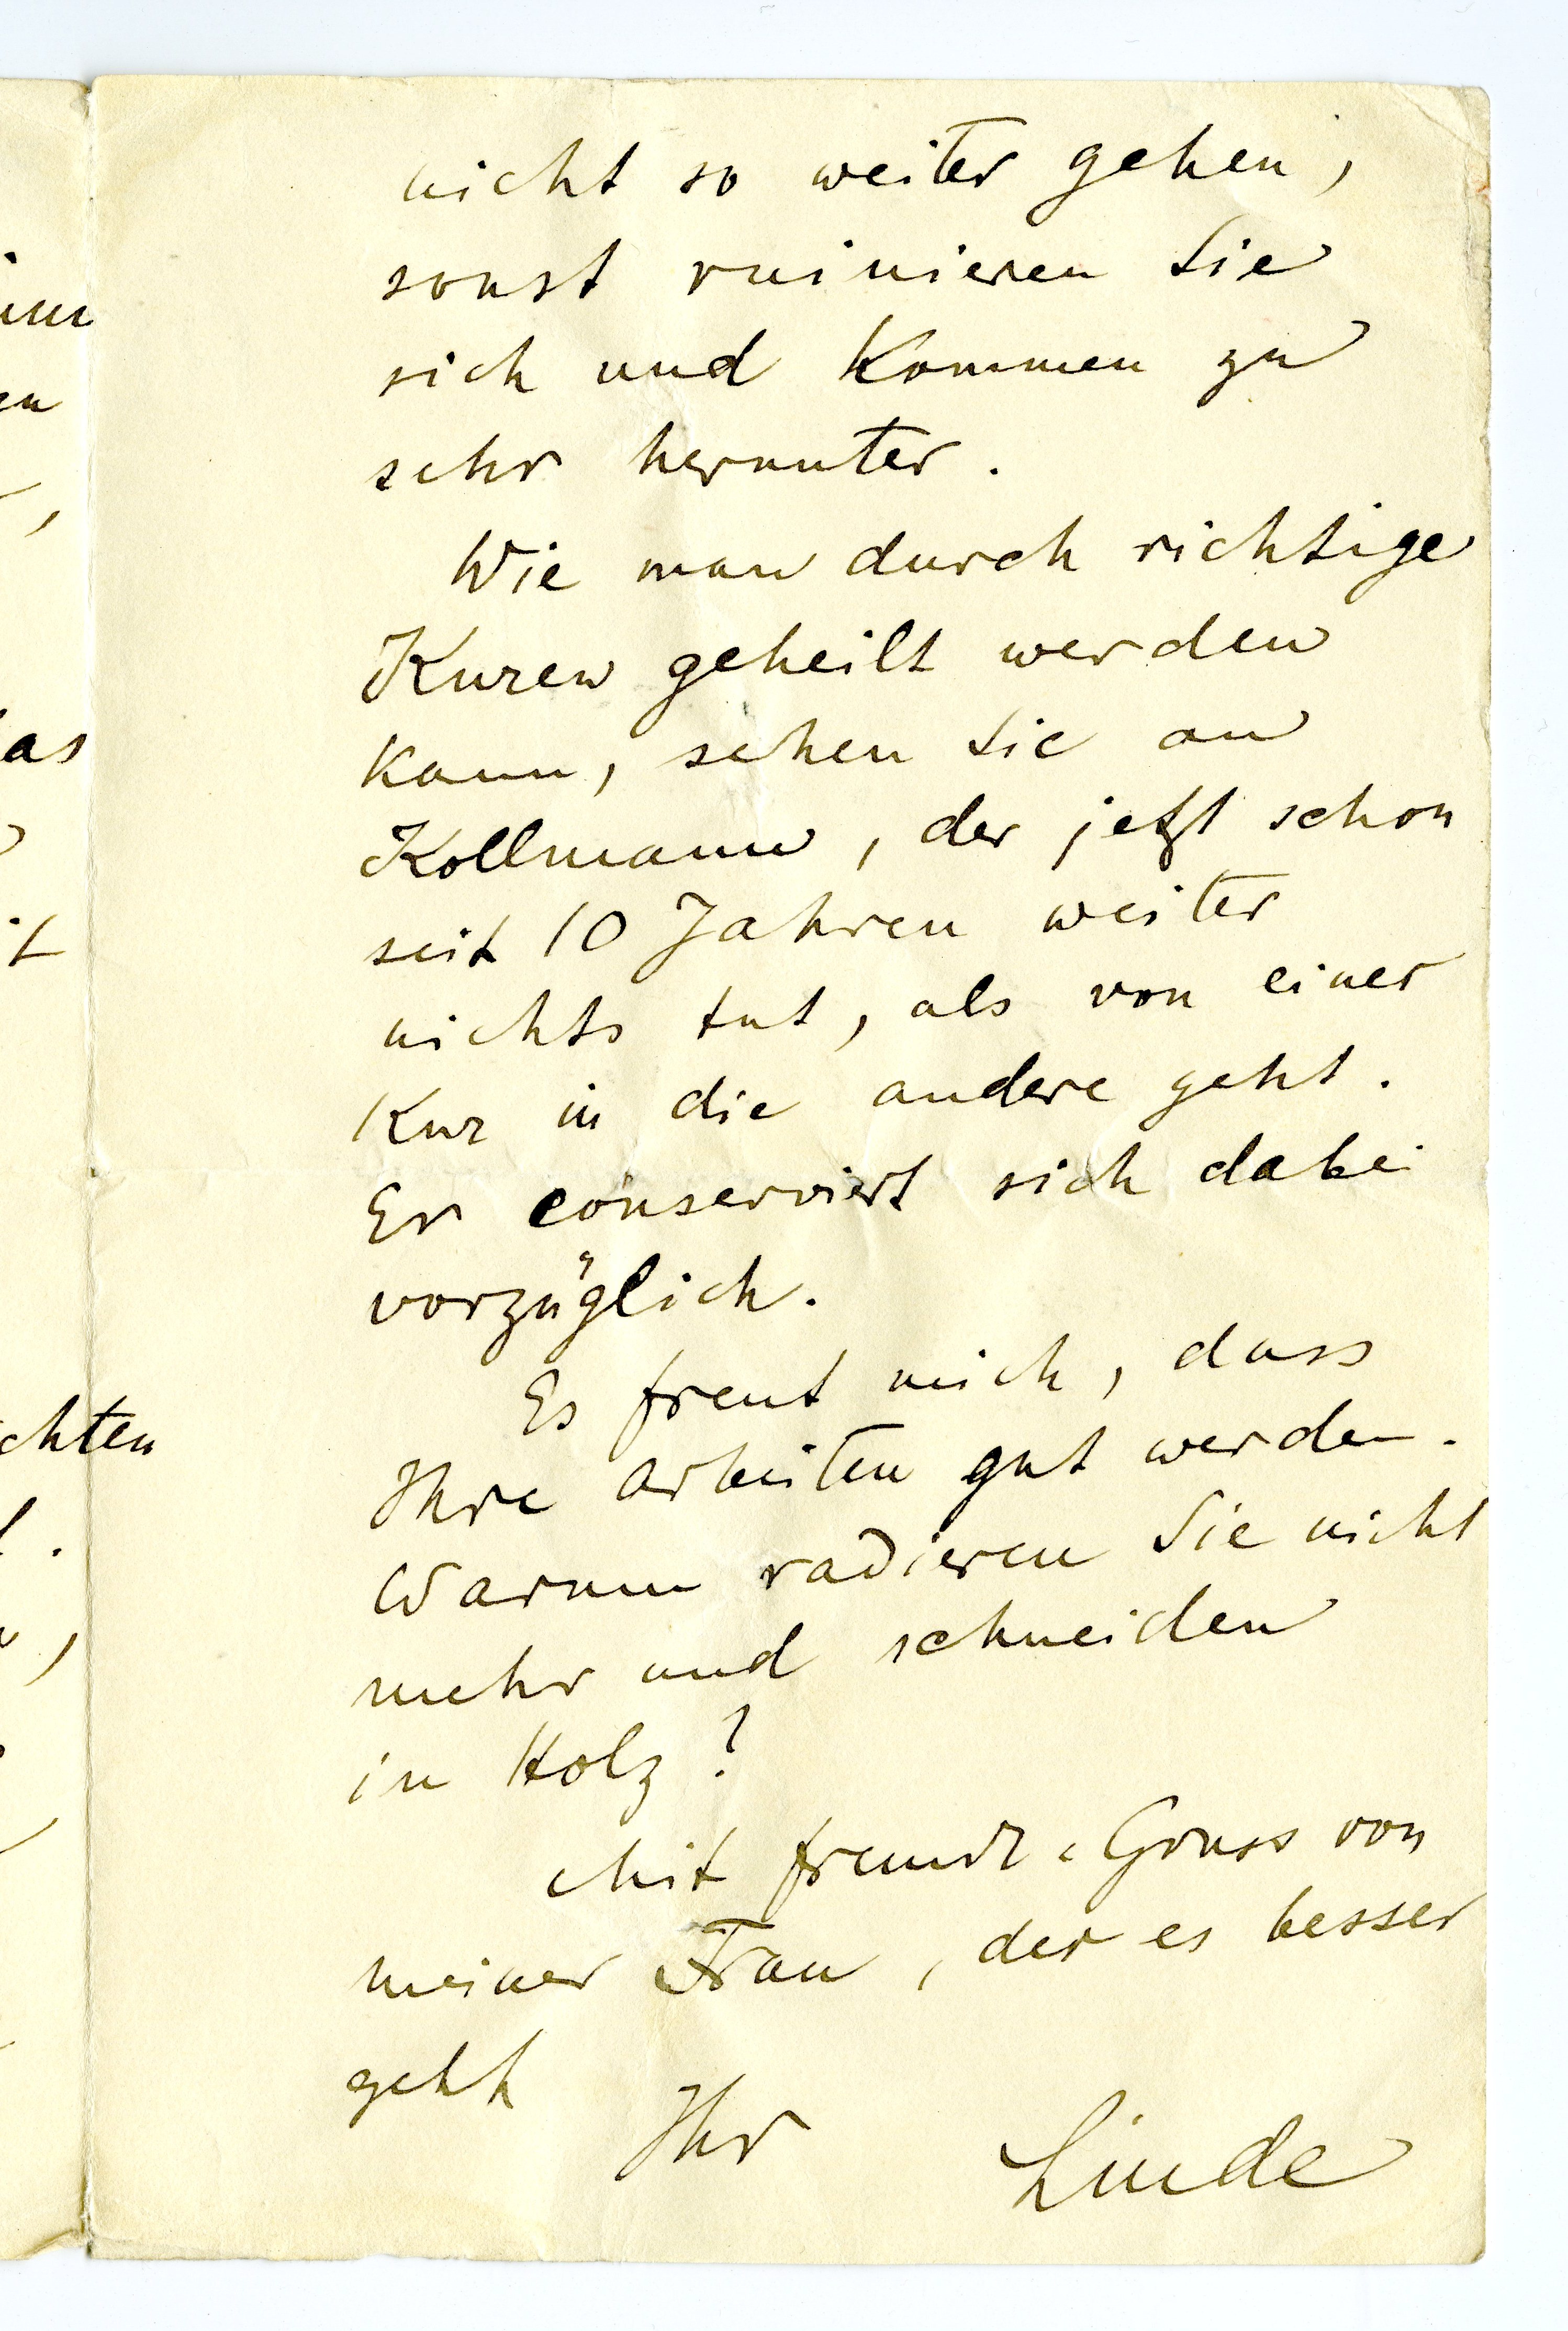 nicht so weiter gehen,
sonst ruinieren Sie
sich und kommen zu
sehr herunter.
Wie man durch richtige
Kuren geheilt werden
kann, sehen Sie an
Kollmann, der jetzt schon
seit 10 Jahren weiter
nichts tut, als von einer
Kur in die andere geht.
Er conserviert sich dabei
vorzüglich.
Es freut mich, dass
Ihre Arbeiten gut werden.
Warum radieren Sie nicht
mehr und schneiden
in Holz?
Mit freundl. Gruss von
meiner Frau, der es besser
geht
Ihr Linde